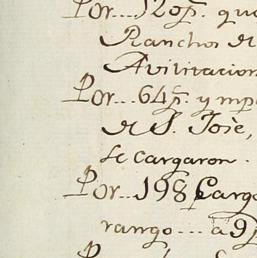 Por...120p. que
Ranchos de
Avilitacion
Por...64p. y mp
de S. Josè,
se cargaron.
Por...198 Carga
rango... a 9p
P